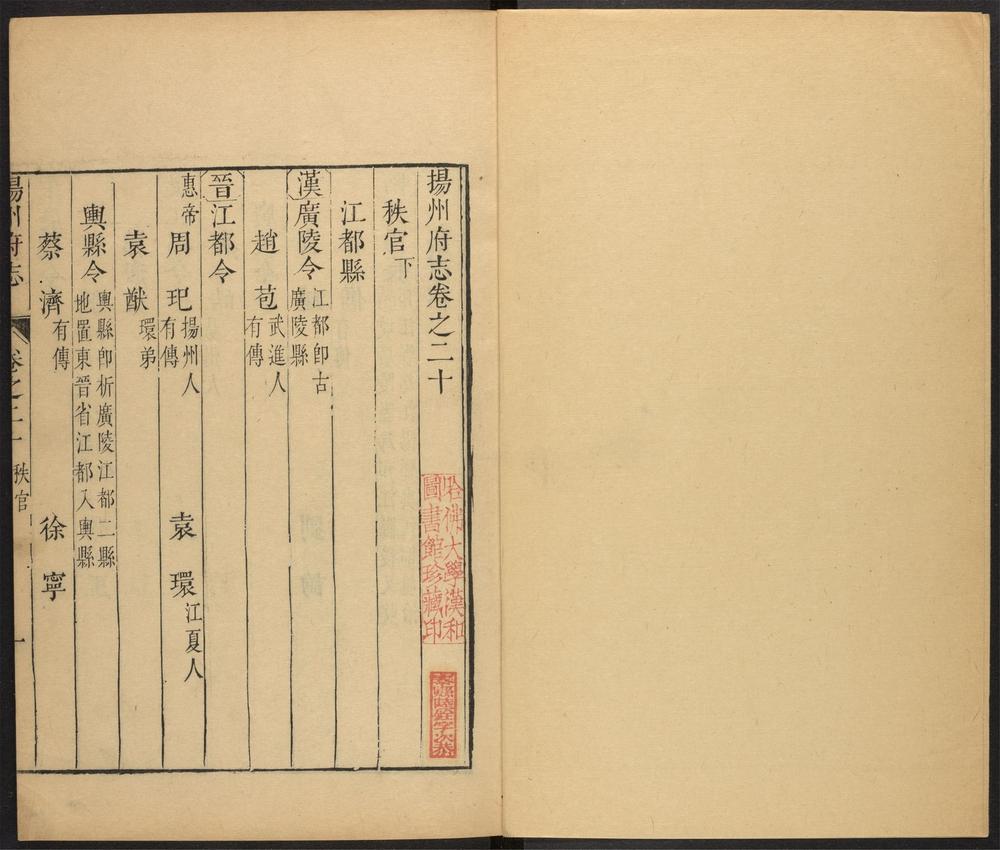 揚州府志卷之二十
秩官下
江都縣
漢廣陵令江都即古廣陵縣
趙苞武進人有傳
晉江都令
惠帝周玘揚州人有傳 袁環江夏人
袁猷環弟
輿縣令輿縣即析廣陵江都二縣地置東晉省江都入輿縣
蔡濟有傳 徐寧
揚州府志 卷之二十 秩官 一
哈佛大學漢和圖書館珍藏印